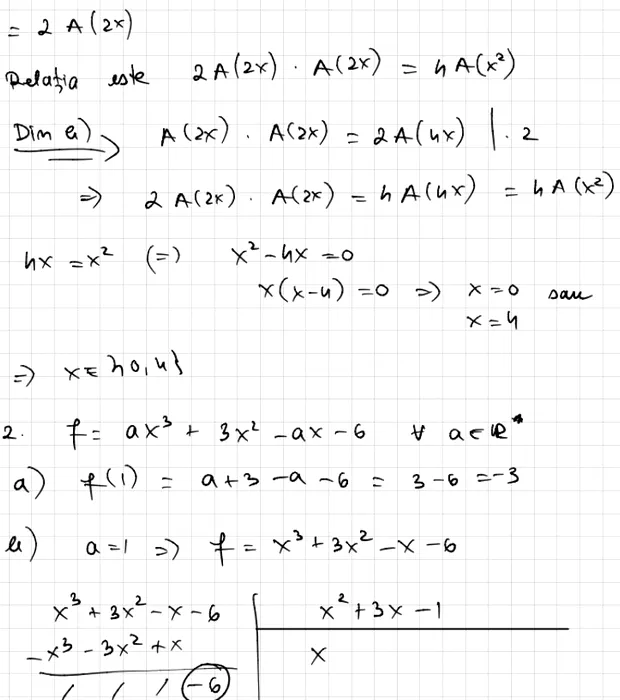 = 2 A(2x)
Relația este 2A(2x) · A(2x) = 4A(x²)
Din b) => A(2x) · A(2x) = 2A(4x) | · 2
=> 2A(2x) · A(2x) = 4A(4x) = 4A(x²)
4x = x² (=) x² - 4x = 0
x(x-4) = 0 => x = 0 sau
x = 4
=> x ∈ {0,4}
2. f = ax³ + 3x² - ax - 6 ∀ a ∈ ℝ*
a) f(1) = a + 3 - a - 6 = 3 - 6 = -3
b) a = 1 => f = x³ + 3x² - x - 6
x³ + 3x² - x - 6 | x² + 3x - 1
-x³ - 3x² + x | x
/ / / -6